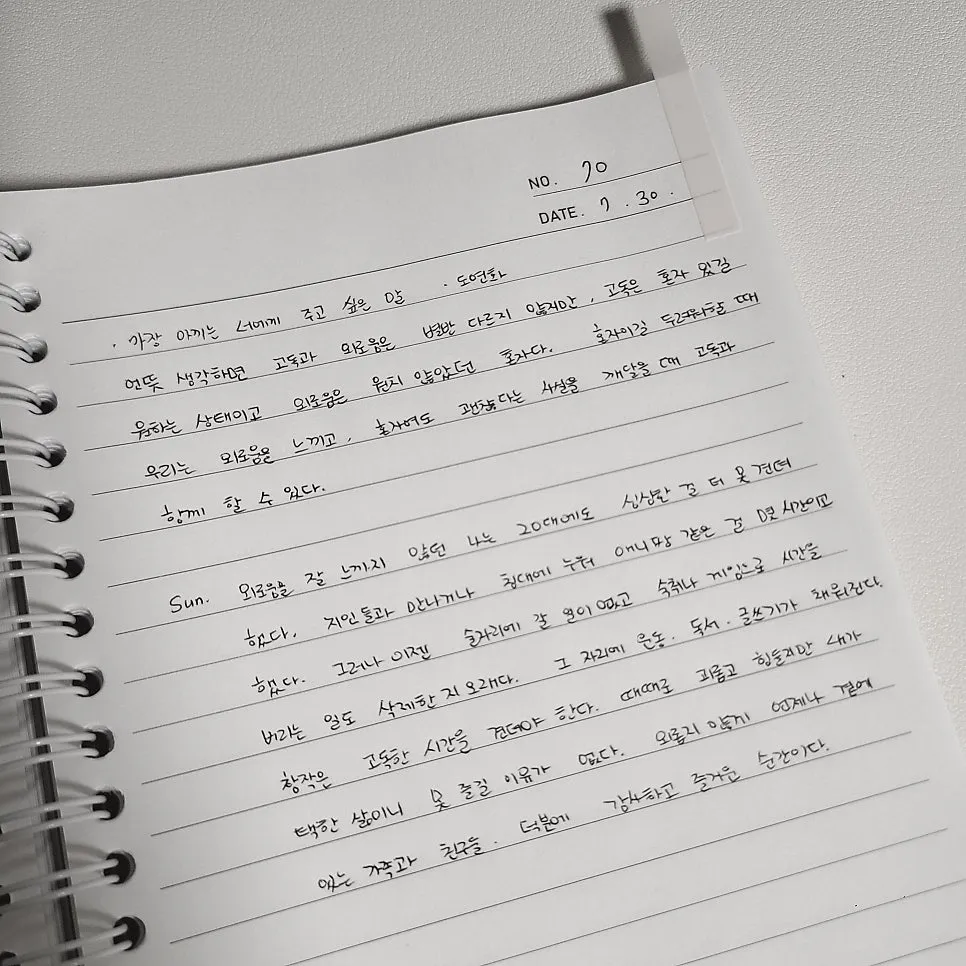 NO. 70
DATE. 7 . 30 .
· 가장 아끼는 너에게 주고 싶은 말 · 도연화
언뜻 생각하면 고독과 외로움은 별반 다르지 않지만, 고독은 혼자 있길
원하는 상태이고 외로움은 원치 않았던 혼자다. 혼자이길 두려워할 때
우리는 외로움을 느끼고, 혼자여도 괜찮다는 사실을 깨달을 때 고독과
함께 할 수 있다.
Sun. 외로움을 잘 느끼지 않던 나는 20대에도 심심한 걸 더 못 견뎌
했다. 지인들과 만나거나 침대에 누워 애니팡 같은 걸 몇 시간이고
했다. 그러나 이젠 술자리에 갈 일이 없고 숙취나 게임으로 시간을
버리는 일도 삭제한 지 오래다. 그 자리에 운동. 독서. 글쓰기가 채워진다.
창작은 고독한 시간을 견뎌야 한다. 때때로 괴롭고 힘들지만 내가
택한 삶이니 못 즐길 이유가 없다. 외롭지 않게 언제나 곁에
있는 가족과 친구들. 덕분에 감사하고 즐거운 순간이다.